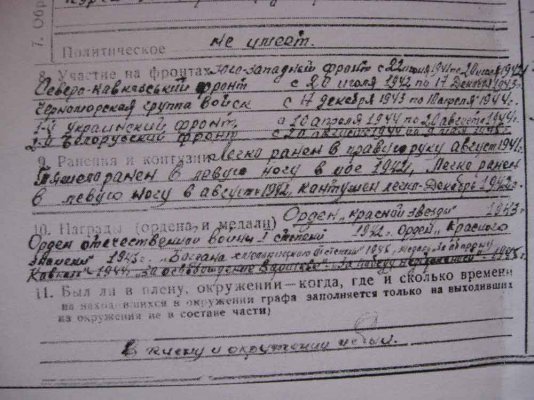 7. Об
Политическое не имеет.
8. Участие на фронтах Юго-Западный фронт с 22 июня 1941 по 20 июля 1942
Северо-Кавказський фронт с 20 июля 1942 по 17 декабря 1943.
Черноморская группа войск с 17 декабря 1943 по 10 апреля 1944.
1-й Украинский фронт с 10 апреля 1944 по 20 августа 1944.
2-й Белорусский фронт с 20 август 1944 по
9. Ранения и контузии Легко ранен в правую руку август 1941.
Тяжело ранен в левую ногу в 1942, Легко ранен
в левую ногу в август 1942, контужен легко декабрь 1942г.
10. Награды (ордена и медали) Орден „Красной звезды" 1943г
Орден отечественной войны I степени 1942. Орден „Красного
знамени" 1943г. „Богдана Хмельницкого" 1945, медаль „За оборону
Кавказа" 1944, „За освобождение Варшавы" „За победу над Германией" 1945
11. Был ли в плену, окружении—когда, где и сколько времени
на наход вшихся в окружении графа заполняется только на выходивших
из окружения не в составе части)
В плену и окружении не был.